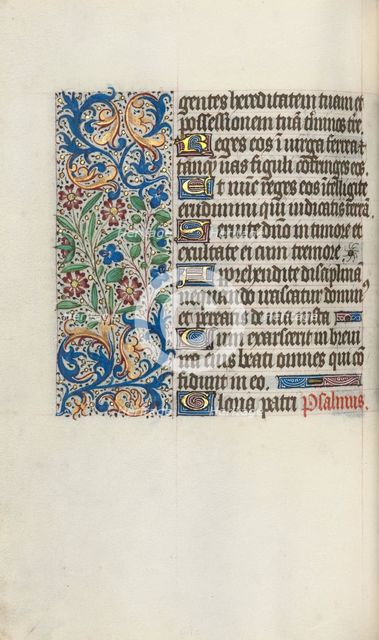 gentes hereditatem tuam et
possessionem tuā tminos tre.
Reges eos i uirga ferrea t
tamq̄ uas figuli cōfringes eos.
Et nūc reges eos ītelligite
erudimini qui iudicatis terrā
Seruite dn̄o in timore et
exultate ei cum tremore
Apprehendite disciplinā
nequando irascatur domin9
et pereatis de uia iusta
Cum exarserit in breui
ira eius beati omnes qui cō
fidunt in eo.
Gloria patri Psalmus.